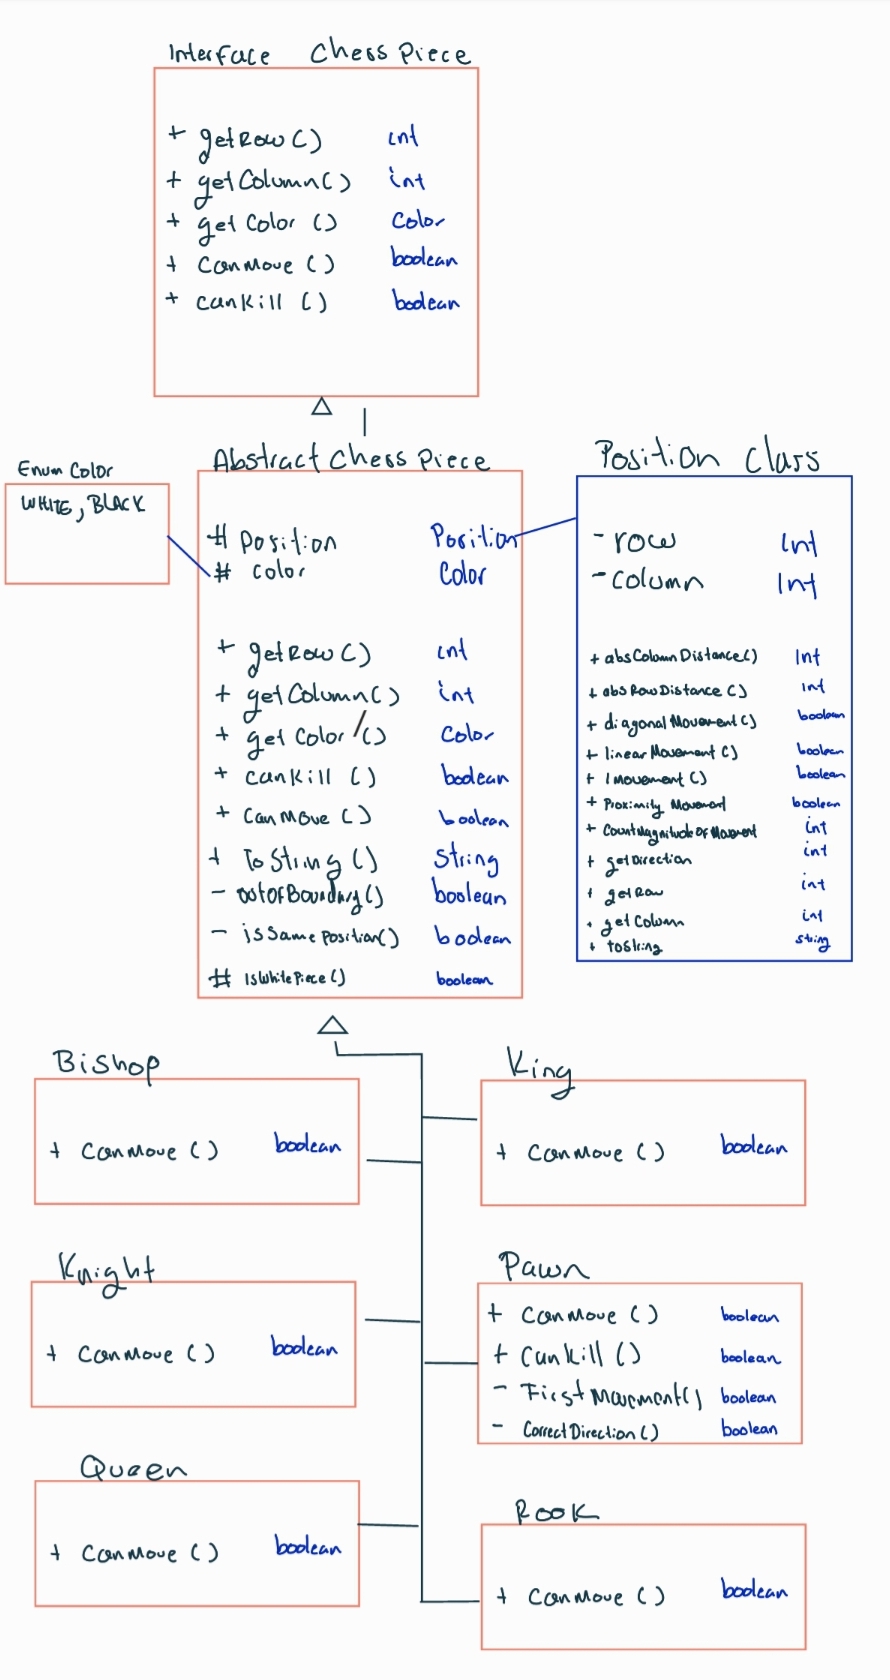 Interface Chess Piece
+ getRow() int
+ getColumn() int
+ getColor () Color
+ CanMove () boolean
+ canKill () boolean
Enum Color
WHITE, BLACK
Abstract Chess Piece
# Position Position
# color Color
+ getRow() int
+ getColumn() int
+ getColor () Color
+ canKill () boolean
+ CanMove () boolean
+ ToString () String
- outOfBoundary() boolean
- isSamePosition() boolean
# IsWhitePiece() boolean
Position Class
- row Int
- column Int
+ absColumnDistance() Int
+ absRowDistance () int
+ diagonal Movement () boolean
+ linear Movement () boolean
+ l Movement () boolean
+ Proximity Movement boolean
+ CountMagnitudeOfMovement int
+ getDirection int
+ getRow int
+ getColumn int
+ toString string
Bishop
+ CanMove () boolean
King
+ CanMove () boolean
Knight
+ CanMove () boolean
Pawn
+ CanMove () boolean
+ CanKill () boolean
- FirstMovement() boolean
- CorrectDirection() boolean
Queen
+ CanMove () boolean
Rook
+ CanMove () boolean